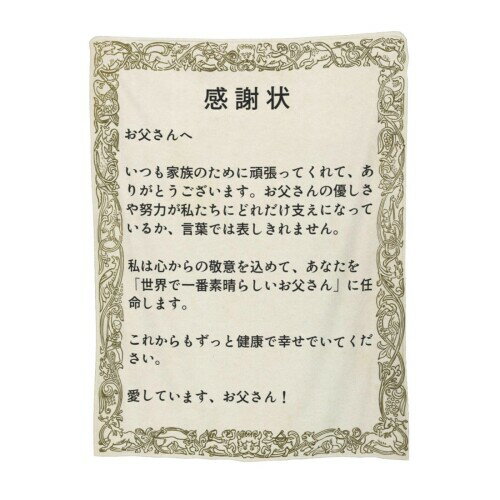 感謝状
お父さんへ
いつも家族のために頑張ってくれて、あ
りがとうございます。お父さんの優しさ
や努力が私たちにどれだけ支えになって
いるか、言葉では表しきれません。
私は心からの敬意を込めて、あなたを
「世界で一番素晴らしいお父さん」に任
命します。
これからもずっと健康で幸せでいてくだ
さい。
愛しています、お父さん！